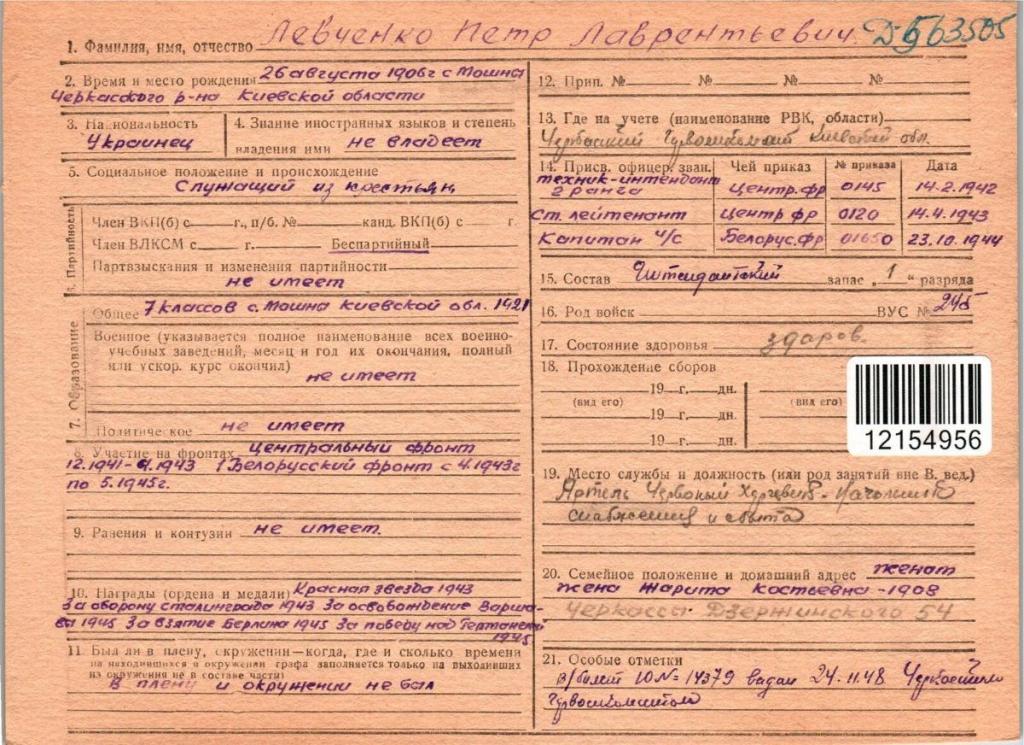 1. Фамилия, имя, отчество Левченко Петр Лаврентьевич Д-563505
2. Время и место рождения 26 августа 1906 г с Мошна
Черкасского р-на Киевской области
3. Национальность
Украинец
4. Знание иностранных языков и степень
владения ими не владеет
5. Социальное положение и происхождение
Служащий из крестьян
6. Партийность
Член ВКП(б) с г., п/б. № канд. ВКП(б) с г.
Член ВЛКСМ с г. Беспартийный
Партвзыскания и изменения партийности
не имеет
7. Образование
Общее 7 классов с. Мошна Киевской обл. 1921
Военное (указывается полное наименование всех военно-
учебных заведений, месяц и год их окончания, полный
или ускор. курс окончил)
не имеет
Политическое не имеет
8. Участие на фронтах Центральный фронт
12.1941-4.1943 1 Белорусский фронт с 4.1943г
по 5.1945г.
9. Ранения и контузии не имеет.
10. Награды (ордена и медали) Красная звезда 1943
За оборону сталинграда 1943 За освобождение Варша-
вы 1945 За взятие Берлина 1945 За победу над Германией
1945
11. Был ли в плену, окружении—когда, где и сколько времени
на находившихся в окружении графа заполняется только на выходивших
из окружения не в составе части)
В плену и окружении не был
12. Прип. № № № №
13. Где на учете (наименование РВК, области)
Киевской обл.
14. Присв. офицер. зван. Чей приказ № приказа Дата
техник-интендант
2 ранга Центр.фр 0145 14.2.1942
ст. лейтенант Центр фр 0120 14.4.1943
Капитан и/с Белорус.фр 01650 23.10.1944
15. Состав запас „1“ разряда
16. Род войск ВУС № 245
17. Состояние здоровья здоров.
18. Прохождение сборов
19 г. дн.
(вид его) (вид его)
19 г. дн.
19 г. дн.
12154956
19. Место службы и должность (или род занятий вне В. вед.)
Артель Червоный - Начальник
снабжения и сбыта
20. Семейное положение и домашний адрес женат
жена Харита Костьевна-1908
Черкассы Дзержинского 54
21. Особые отметки
в/билет Ю № 14379 выдан 24.11.48